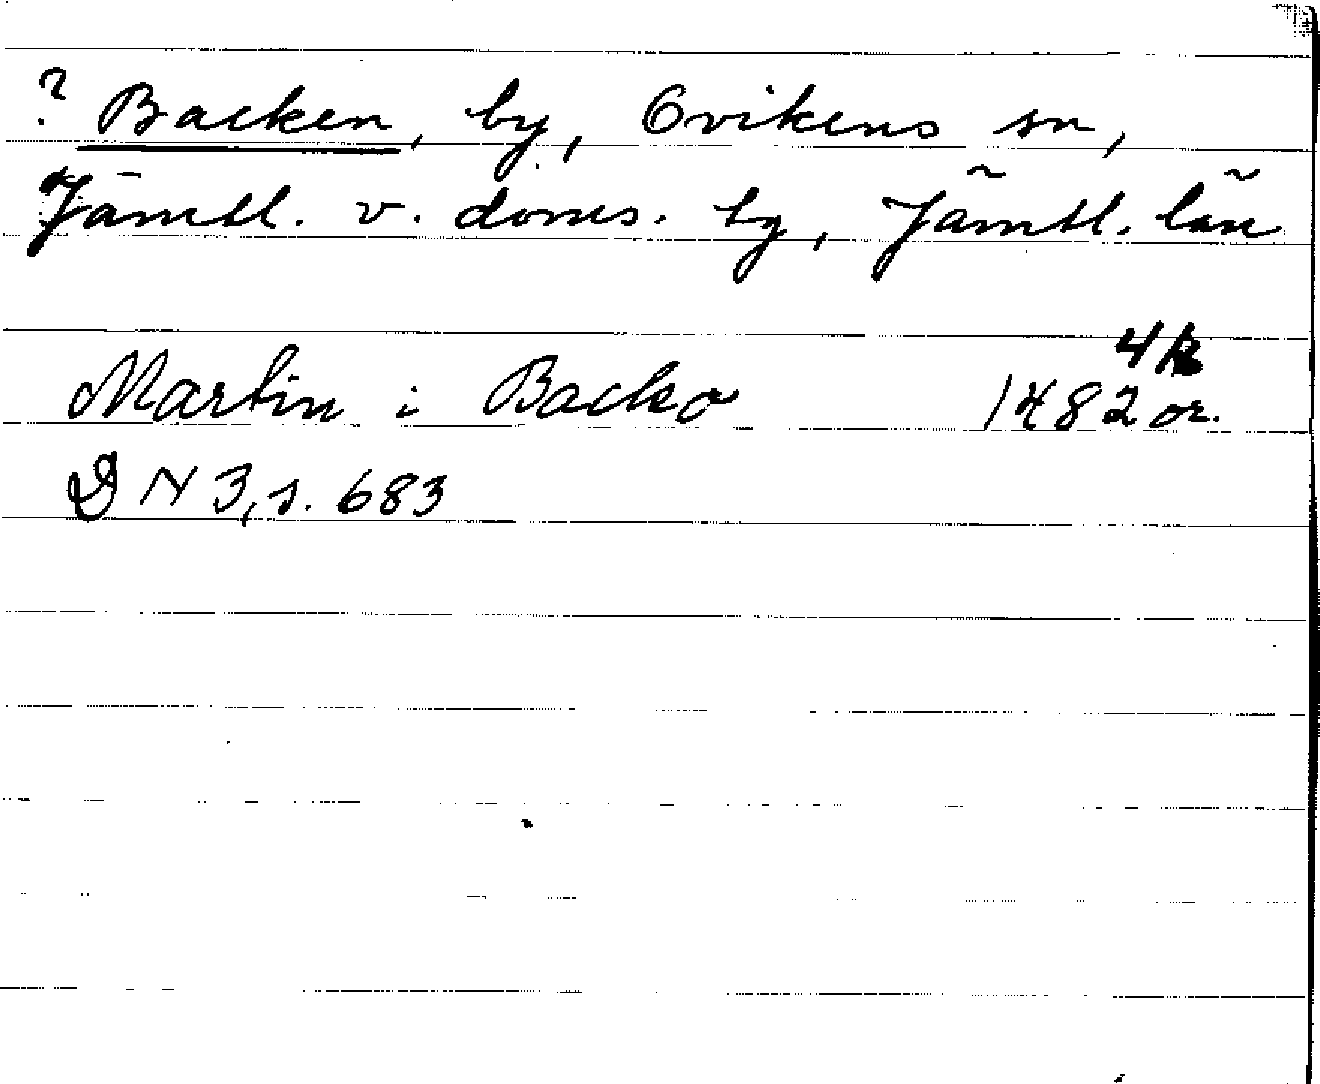 ? Backen, by, Ovikens sn,
Jämtl. v. doms. tg, Jämtl. län
4/12
Martin i Backo 1482 or.
DN 3, s. 683